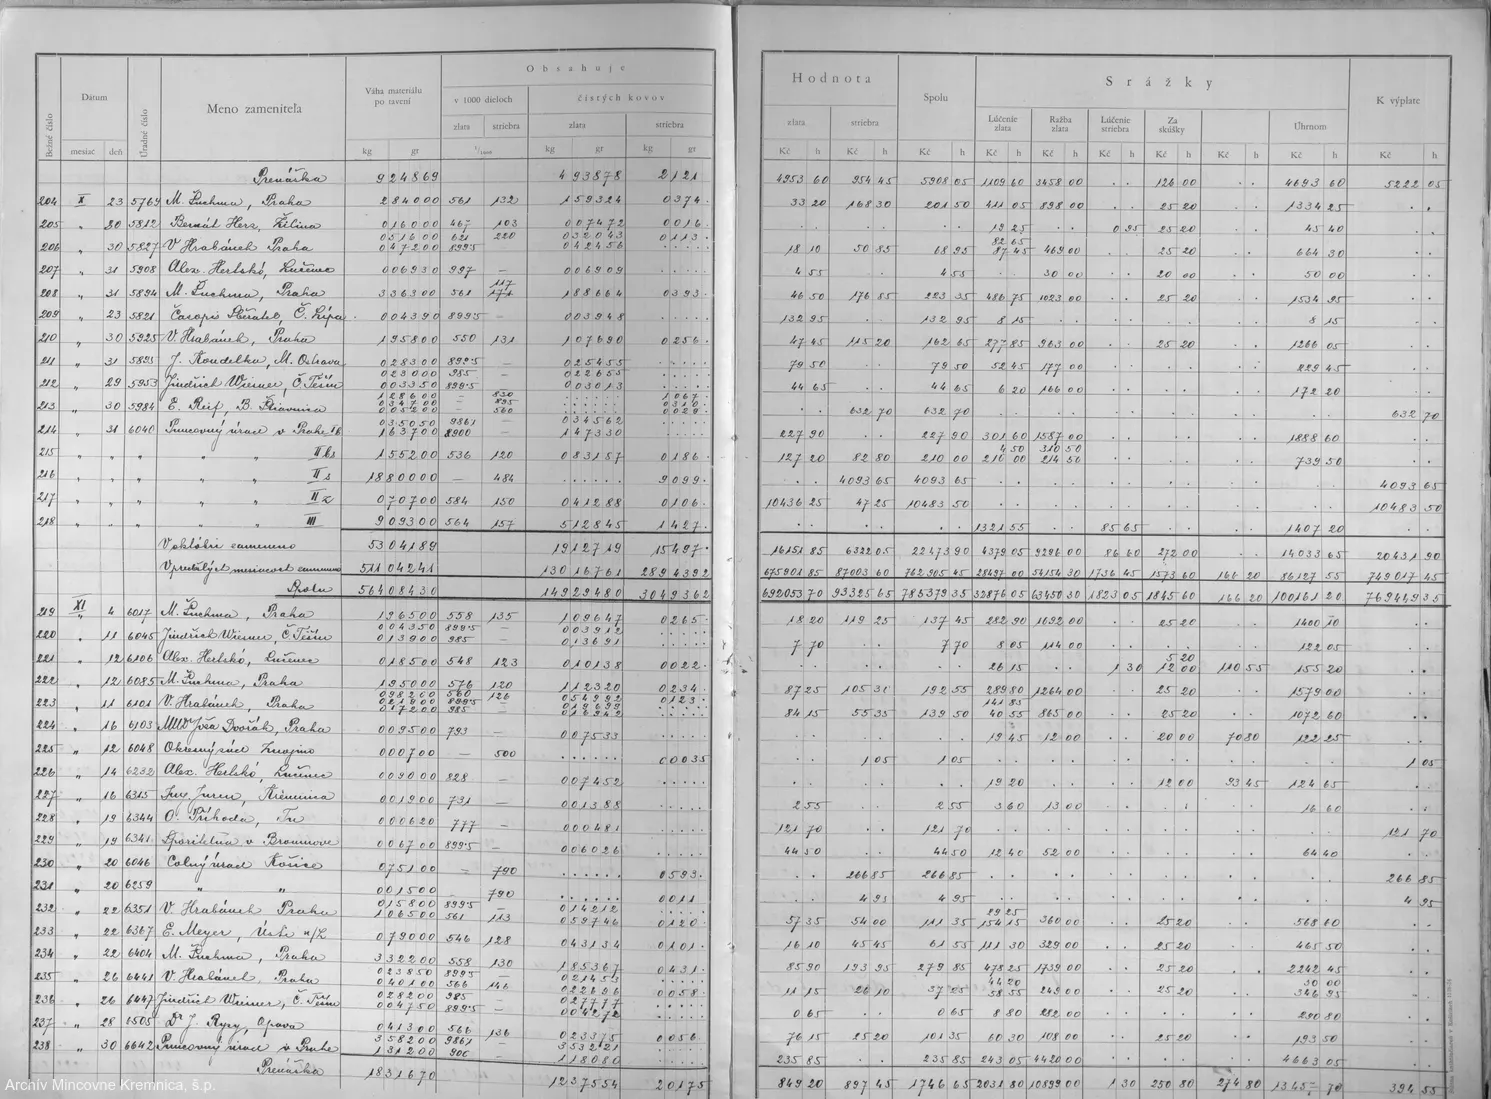 Obsahuje
Hodnota
Srážky
Dátum
Meno zameniteľa
Váha materiálu
po tavení
v 1000 dieloch
čistých kovov
Spolu
K výplate
Bežné číslo
Úradné číslo
zlata
striebra
zlata
striebra
zlata
striebra
Lúčenie
zlata
Ražba
zlata
Lúčenie
striebra
Za
skúšky
Úhrnom
mesiac
deň
kg gr
1/1000
kg gr
kg gr
Kč h
Kč h
Kč h
Kč h
Kč h
Kč h
Kč h
Kč h
Kč h
Kč h
Prenáška 924869 493878 2121 4953 60 954 45 5908 05 1109 60 3458 00 124 00 4693 60 5222 05
204 X 23 5769 M. Puchma, Praha 284000 561 132 159324 0374 33 20 168 30 201 50 411 05 898 00 25 20 1334 25
205 " 20 5812 Bernát Herz, Žilina 016000 467 103 007472 0016 19 25 0 95 25 20 45 40
206 " 30 5827 V. Hrabánek Praha 051600 621 220 032043 0113
047200 8995 042456 18 10 50 85 68 95 82 65 87 45 469 00 25 20 664 30
207 " 31 5908 Alex. Hertskó, Lučenec 006930 997 — 006909 4 55 4 55 30 00 20 00 50 00
208 " 31 5894 M. Puchma, Praha 336300 561 117 171 188664 0393 46 50 176 85 223 35 486 75 1023 00 25 20 1534 95
209 " 23 5821 Č. Lípa 004390 8995 003948 132 95 132 95 8 15 8 15
210 " 30 5925 V. Hrabánek, Praha 195800 550 131 107690 0256 47 45 115 20 162 65 277 85 963 00 25 20 1266 05
211 " 31 5893 J. Koudelka, M. Ostrava 028300 8995 025455 79 50 79 50 52 45 177 00 229 45
212 " 29 5953 Jindřich Wiesner, Č. Těšín 023000 985 022655
003350 8995 003013 44 65 44 65 6 20 166 00 172 20
213 " 30 5984 E. Reif, B. Štiavnica 128600 — 830 1067
034700 — 895 0310
005200 — 560 0029 632 70 632 70 632 70
214 " 31 6040 Puncovný úrad v Prahe 035050 9861 034562
163700 8900 — 147330 227 90 227 90 301 60 1587 00 1888 60
215 " " " " " 155200 536 120 083187 0186 127 20 82 80 210 00 4 50 216 00 310 50 214 50 739 50
216 " " " " " II s 1880000 — 484 9099 4093 65 4093 65 4093 65
217 " " " " " II z 070700 584 150 041288 0106 10436 25 47 25 10483 50 10483 50
218 " " " " " III 909300 564 157 512845 1427 1321 55 85 65 1407 20
V októbri zamenené 5304189 1912719 15497 16151 85 6322 05 22473 90 4379 05 9296 00 86 60 272 00 14033 65 20431 90
V predošlých mesiacoch zamenené 51104241 13016761 2894392 675901 85 87003 60 762905 45 28497 00 54154 30 1736 45 1573 60 166 20 86127 55 749017 45
Spolu 56408430 14929480 3049362 692053 70 93325 65 785379 35 32876 05 63450 30 1823 05 1845 60 166 20 100161 20 769449 35
219 XI 4 6017 M. Puchma, Praha 196500 558 135 109647 0265 18 20 119 25 137 45 282 90 1692 00 25 20 1400 10
220 " 11 6045 Jindřich Wiesner, Č. Těšín 004350 8995 003912
013900 985 013691 7 70 7 70 8 05 114 00 122 05
221 " 12 6106 Alex. Hertskó, Lučenec 018500 548 123 010138 0022 26 15 1 30 5 20 12 00 110 55 155 20
222 " 12 6085 M. Puchma, Praha 195000 576 120 112320 0234 87 25 105 31 192 55 289 80 1264 00 25 20 1579 00
223 " 11 6101 V. Hrabánek, Praha 098200 560 126 054992 0123
021900 8995 019699
017200 985 016942 84 15 55 35 139 50 141 85 40 55 865 00 25 20 1072 60
224 " 16 6103 MUDr Joža Dvořák, Praha 009500 793 007533 19 45 12 00 20 00 70 80 122 25
225 " 12 6048 Okresný súd Znojmo 000700 — 500 00035 1 05 1 05 1 05
226 " 14 6232 Alex. Hertskó, Lučenec 009000 828 — 007452 19 20 12 00 93 45 124 65
227 " 16 6315 Kremnica 001900 731 — 001388 2 55 2 55 3 60 13 00 16 60
228 " 19 6344 O. Příhoda, 000620 777 — 000481 121 70 121 70 121 70
229 " 19 6341 Sporitelna v Broumove 006700 8995 — 006026 44 50 44 50 12 40 52 00 64 40
230 " 20 6046 Colný úrad Košice 075100 — 790 0593 266 85 266 85 266 85
231 " 20 6259 " " 001500 — 790 0011 4 95 4 95 4 95
232 " 22 6351 V. Hrabánek Praha 015800 8995 — 014212
106500 561 113 059746 0120 57 35 54 00 111 35 29 25 154 15 360 00 25 20 568 60
233 " 22 6367 E. Meyer, Ústí n/L 079000 546 128 043134 0101 16 10 45 45 61 55 111 30 329 00 25 20 465 50
234 " 22 6404 M. Puchma, Praha 332200 558 130 185367 0431 85 90 193 95 279 85 478 25 1739 00 25 20 2242 45
235 " 26 6441 V. Hrabánek Praha 023850 8995 — 021453
040100 566 146 022696 0058 11 15 26 10 37 25 44 20 58 55 249 00 25 20 30 00 346 95
236 " 26 6447 Jindřich Wiesner, Č. Těšín 028200 985 — 027777
004750 8995 — 004272 0 65 0 65 8 80 282 00 290 80
237 " 28 6505 Dr J. Opava 041300 566 136 023375 0056 76 15 25 20 101 35 60 30 108 00 25 20 193 50
238 " 30 6642 Puncovný úrad v Prahe 358200 9861 353221
131200 900 118080 235 85 235 85 243 05 4420 00 4663 05
Prenáška 1831670 1237554 20175 849 20 897 45 1746 65 2031 80 10899 00 1 30 250 80 274 80 70 394 55
Archív Mincovne Kremnica, š.p.